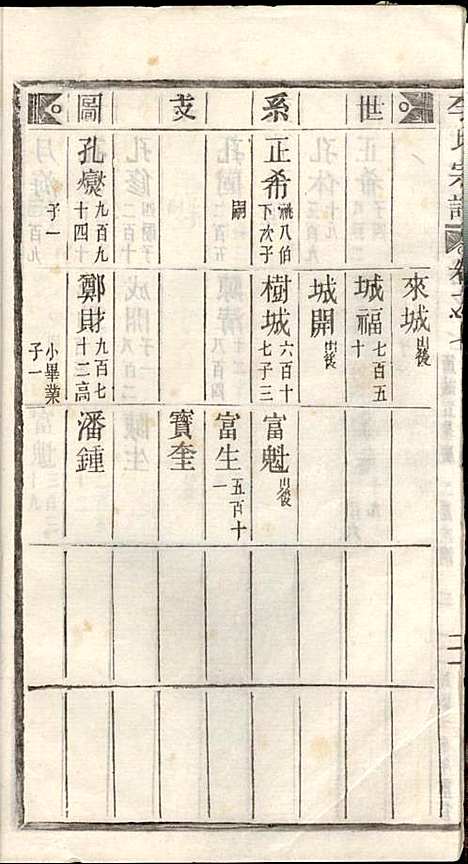 世系支圖
正希 祧八伯下次子嗣
孔爕 九百九十四十子一
來城 出後
城福 七百五十
城開 出後
樹城 六百十七子三
鄭財 九百七十二高小畢業子一
富魁 出後
富生 五百十一
寶奎
潘鍾
李氏宗譜